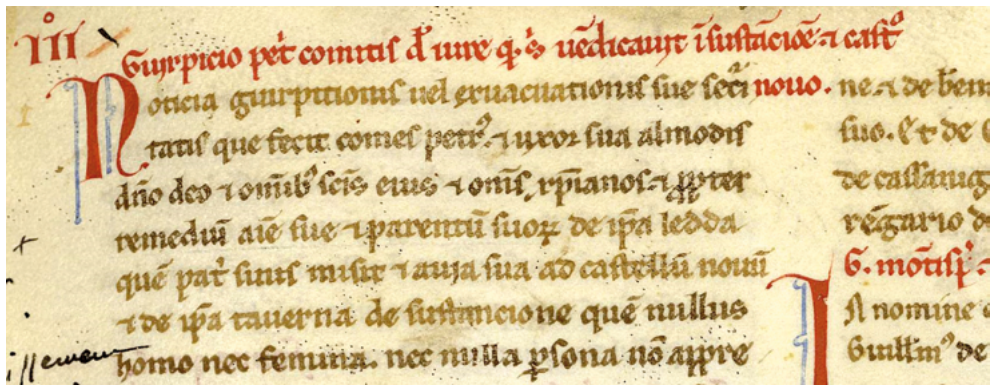 IIIº
Guirpicio pet̄ comitis d̄ iure q̄ s̄ uēdicauit ī sustācioē ⁊ castꝰ
nouo.
Noticia guirpitionis uel exuacuationis siue secūri
tatis que fecit comes petrꝰ. ⁊ uxor sua almodis
dn̄o deo ⁊ om̄ibꝰ sc̄is eius ⁊ om̄s xp̄ianos. ⁊ ꝓpter
remediū aīe sue ⁊ parentū suoꝝ de ip̄a ledda
quē pat̄ suus misit ⁊ auia sua ad castellū nouū
⁊ de ip̄a tauerna de sustancione quē nullus
homo nec femina. nec nulla ꝑsona nō appre
ne. ⁊ de
suo. Et de
de cassanug
rēgario d
G. mōtisp̄.
In nomine
Guillmꝰ de